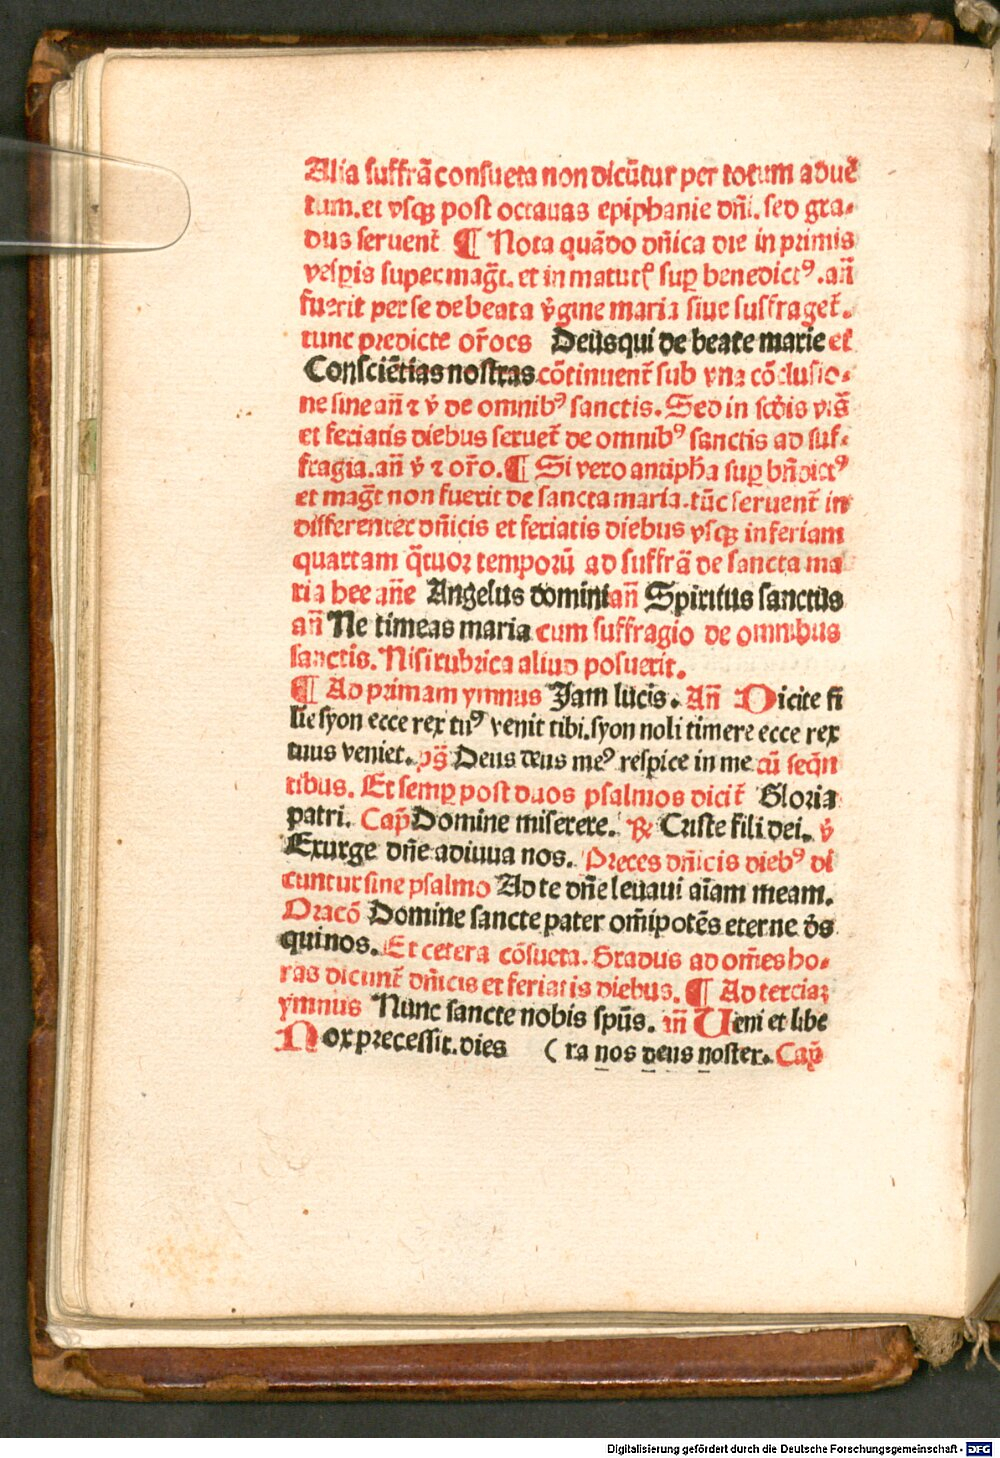 Alia suffrã consueta non dicũtur per totum aduẽ
tum. et vsqꝫ post octauas epiphanie dñi. sed gra⸗
dus seruent̃ ¶ Nota quãdo dñica die in primis
vesꝑis super mag̃t. et in matut suꝑ benedictꝰ. añ
fuerit per se de beata v̾gine maria siue suffraget̃.
tunc predicte or̃oes Deus qui de beate marie et
Consciẽtias nostras cõtinuent̃ sub vna cõclusio⸗
ne sine añ ⁊ v̾ de omnibꝰ sanctis. Sed in
et feriatis diebus seruet̃ de omnibꝰ sanctis ad suf⸗
fragia. añ v̾ ⁊ or̃o. ¶ Si vero antipha suꝑ bñdictꝰ
et mag̃t non fuerit de sancta maria. tũc seruent̃ in
differenter dñicis et feriatis diebus vsqꝫ in feriam
quartam q̃tuor temporũ ad suffrã de sancta ma
ria hee añe Angelus domini añ Spiritus sanctus
añ Ne timeas maria cum suffragio de omnibus
sanctis. Nisi rubrica aliud posuerit.
¶ Ad primam ymnus Jam lucis. Añ Dicite fi
lie syon ecce rex tuꝰ venit tibi. syon noli timere ecce rex
tuus veniet. p̃s Deus deus meꝰ respice in me cũ seqñ
tibus. Et semꝑ post duos psalmos dicit̃ Gloria
patri. Cap̃ Domine miserere. ℟ Criste fili dei. v̾
Exurge dñe adiuua nos. Preces dñicis diebꝰ di
cuntur sine psalmo Ad te dñe leuaui aĩam meam.
Oracõ Domine sancte pater om̃ipotẽs eterne ds̃
qui nos. Et cetera cõsueta. Gradus ad om̃es ho⸗
ras dicunt̃ dñicis et feriatis diebus. ¶ Ad terciaꝫ
ymnus Nunc sancte nobis spũs. añ Ueni et libe
Nox precessit. dies ( ra nos deus noster. Cap̃
Digitalisierung gefördert durch die Deutsche Forschungsgemeinschaft - DFG